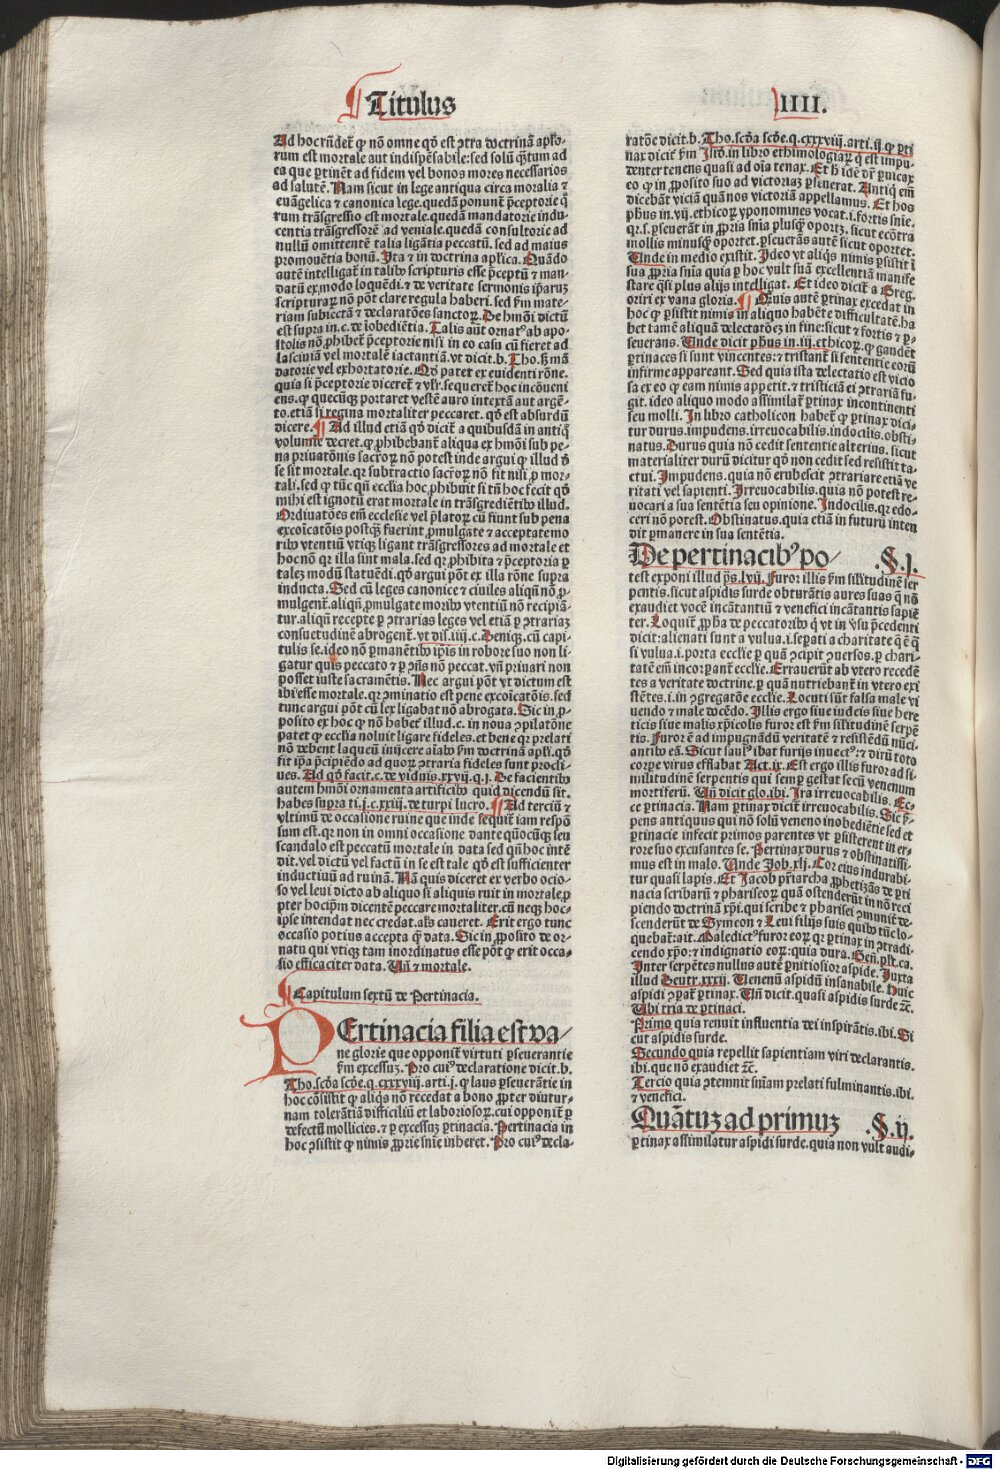 Titulus
IIII.
Ad hoc rñdet͛ ꝙ nō omne qđ est ꝯtra doctrinā apl̓o-
rum est mortale aut indispēsabile: sed solū q̄tum ad
ea que ꝑtinēt ad fidem vel bonos mores necessarios
ad salutē. Nam sicut in lege antiqua circa moralia ⁊
euāgelica ⁊ canonica lege. quedā ponunt͛ p̄ceptorie q̄
rum trāsgressio est mortale. quedā mandatorie indu-
centia trāsgressorē ad veniale. quedā consultorie ad
nullū omittentē talia ligātia peccatū. sed ad maius
promouētia bonū. Ita ⁊ in doctrina apl̓ica. Quādo
autē intelligat͛ in talibꝰ scripturis esse p̄ceptū ⁊ man-
datū ex modo loquēdi. ⁊ de veritate sermonis ip̄aruꝫ
scripturaꝝ nō pōt clare regula haberi. sed ẜm mate-
riam subiectā ⁊ declaratōes sanctoꝝ. De hmōi dictū
est supra in. c. de īobediētia. Talis aūt ornatꝰ ab apo-
stolis nō ꝓhibet͛ p̄ceptorie nisi in eo casu cū fieret ad
lasciuiā vel mortalē iactantiā. vt dicit. b. Tho. ẞ mā
datorie vel exhortatorie. Qđ patet ex euidenti rōne.
quia si p̄ceptorie diceret͛ ⁊ vl̓r. sequeret͛ hoc incōueni
ens. ꝙ quecūqꝫ portaret vestē auro intextā aut argē-
to. etiā si regina mortaliter peccaret. qđ est absurdū
dicere. ¶ Ad illud etiā qđ dicit͛ a quibusdā in antiq̄
volumie decret. ꝙ ꝓhibebant͛ aliqua ex hmōi sub pe-
na priuatōnis sacroꝝ nō potest inde argui ꝙ illud đ
se sit mortale. qꝛ subtractio sacroꝝ nō fit nisi ꝓ mor-
tali. sed ꝙ tūc qn̄ ecclīa hoc ꝓhibuit si tn̄ hoc fecit qđ
mihi est ignotū erat mortale in trāsgrediētibꝰ illud.
Ordinatōes em̄ ecclesie vel p̄latoꝝ cū fiunt sub pena
excōicatōis postqꝫ fuerint ꝓmulgate ⁊ acceptate mo
ribꝰ vtentiū vtiqꝫ ligant trāsgressores ad mortale et
hoc nō qꝛ illa sint mala. sed qꝛ ꝓhibita ⁊ p̄ceptoria ꝑ
taleꝫ modū statuēdi. qđ argui pōt ex illa rōne supra
inducta. Sed cū leges canonice ⁊ ciuiles aliqn̄ nō ꝓ-
mulgent͛. aliqn̄ ꝓmulgate moribꝰ vtentiū nō recipiā-
tur. aliqn̄ recepte ꝑ ꝯtrarias leges vel etiā ꝑ ꝯtrariaꝫ
consuetudinē abrogent͛. vt dis. iiij. c. Deniqꝫ. cū capi-
tulis se. ideo nō ꝑmanētibꝰ ip̄is in robore suo non li-
gatur quis peccato ⁊ ꝑ ꝯn̄s nō peccat. vn̄ priuari non
posset iuste sacramētis. Nec argui pōt vt dictum est
ibi esse mortale. qꝛ ꝯminatio est pene excoīcatōis. sed
tunc argui pōt cū lex ligabat nō abrogata. Sic in ꝓ-
posito ex hoc ꝙ nō habet͛ illud. c. in noua ꝯpilatōne
patet ꝙ ecclīa noluit ligare fideles. et bene qꝛ prelati
nō debent laqueū inijcere aīabꝰ ẜm doctrinā apl̓i. qđ
fit ip̄a p̄cipiēdo ad quoꝝ ꝯtraria fideles sunt procli-
ues. Ad qđ facit. c. de viduis. xxvij. q. j. De facientibꝰ
autem hmōi ornamenta artificibꝰ quid dicendū sit.
habes supra ti. j. c. xxiij. de turpi lucro. ¶ Ad terciū ⁊
vltimū de occasione ruine que inde sequit͛ iam respō
sum est. qꝛ non in omni occasione dante quōcūqꝫ seu
scandalo est peccatū mortale in data sed qn̄ hoc intē
dit. vel dictū vel factū in se est tale qđ est sufficienter
inductiuū ad ruinā. Nā quis diceret ex verbo ocio-
so vel leui dicto ab aliquo si aliquis ruit in mortale. ꝓ
pter hoc ip̄m dicentē peccare mortaliter. cū neqꝫ hoc
ipse intendat nec credat. al̓s caueret. Erit ergo tunc
occasio potius accepta q̄ data. Sic in ꝓposito de or-
natu qui vtiqꝫ tam inordinatus esse pōt ꝙ erit occa-
sio efficaciter data. Un̄ ⁊ mortale.
¶ Capitulum sextū de Pertinacia.
PErtinacia filia est va-
ne glorie que opponit͛ virtuti ꝑseuerantie
ẜm excessuꝫ. Pro cuiꝰ declaratione dicit. b.
Tho. scđa scđe. q. cxxxviij. arti. j. ꝙ laus ꝑseuerātie in
hoc cōsistit ꝙ aliqͥs nō recedat a bono ꝓpter diutur-
nam tolerātiā difficiliū et laboriosoꝝ. cui opponit͛ ꝑ
defectū mollicies. ⁊ ꝑ excessuꝫ ꝑtinacia. Pertinacia in
hoc ꝯsistit ꝙ nimis ꝓprie sn̄ie inheret. Pro cuiꝰ decla-
ratōe dicit. b. Tho. scđa scđe. q. cxxxviij. arti. ij. ꝙ ꝑti
nax dicit͛ ẜm Isid. in libro ethimologiaꝝ q̄ est impu-
denter tenens quasi ad oīa tenax. Et h̄ idē dr̄ ꝑuicax
eo ꝙ in ꝓposito suo ad victoriaꝫ ꝑseuerat. Antiq̄ em̄
dicebāt viciā quā nos victoriā appellamus. Et hos
ph̄us in. vij. ethicoꝝ yponomines vocat. i. fortis sn̄ie.
qꝛ. s. ꝑseuerāt in ꝓpria sn̄ia plusꝗ̄ oportꝫ. sicut ecōtra
mollis minusꝗ̄ oportet. ꝑseuerās autē sicut oportet.
Unde in medio existit. Ideo vt aliqͥs nimis ꝑsistit ī
sua ꝓpria sn̄ia quia ꝑ hoc vult suā excellentiā manife
stare qͣsi plus alijs intelligat. Et ideo dicit͛ a Greg.
oriri ex vana gloria. ¶ Quis autē ꝑtinax excedat in
hoc ꝙ ꝑsistit nimis in aliquo habēte difficultatē. ha
bet tamē aliquā delectatōeꝫ in fine: sicut ⁊ fortis ⁊ ꝑ-
seuerans. Unde dicit ph̄us in. iij. ethicoꝝ. ꝙ gaudēt
ꝑtinaces si sunt vincentes: ⁊ tristant͛ si sententie eorū
infirme appareant. Sed quia ista delectatio est vicio
sa ex eo ꝙ eam nimis appetit. ⁊ tristiciā ei ꝯtrariā fu-
git. ideo aliquo modo assimilat͛ ꝑtinax incontinenti
seu molli. In libro catholicon habet͛ ꝙ ꝑtinax dici-
tur durus. impudens. irreuocabilis. indocilis. obsti
natus. Durus quia nō cedit sententie alterius. sicut
materialiter durū dicitur qđ non cedit sed resistit ta-
ctui. Impudens. quia nō erubescit ꝯtrariare etiā ve
ritati vel sapienti. Irreuocabilis. quia nō potest re-
uocari a sua sentētia seu opinione. Indocilis. qꝛ edo-
ceri nō potest. Obstinatus. quia etiā in futurū inten
dit ꝑmanere in sua sentētia.
De pertinacibꝰ po- .§. j.
test exponi illud p̄s. lvij. Furor illis ẜm silitudinē ser
pentis. sicut aspidis surde obturātis aures suas q̄ nō
exaudiet vocē incātantiū ⁊ venefici incātantis sapiē
ter. Loquit͛ ꝓph̄a de peccatoribꝰ q̄ vt in ꝟsu p̄cedenti
dicit: alienati sunt a vulua. i. seꝑati a charitate q̄ ē q̄
si vulua. i. porta ecclīe ꝑ quā ꝯcipit ꝯuersos. ꝑ chari-
tatē em̄ incorꝑant͛ ecclīe. Errauerūt ab vtero recedē
tes a veritate doctrine. ꝑ quā nutriebant͛ in vtero exi
stētes. i. in ꝯgregatōe ecclīe. Locuti sūt falsa male vi
uendo ⁊ male docēdo. Illis ergo siue iudeis siue here
ticis siue malis xp̄icolis furor est ẜm silitudinē serpē
tis. Furor ē ad impugnādū veritatē ⁊ resistēdū nūci-
antibꝰ eā. Sicut saulꝰ ibat furijs inuectꝰ: ⁊ dirū toto
corpe virus efflabat Act. ix. Est ergo illis furor ad si-
militudinē serpentis qui semꝑ gestat secū venenum
mortiferū. Un̄ dicit glo. ibi. Ira irreuocabilis. Ec-
ce ꝑtinacia. Nam ꝑtinax dicit͛ irreuocabilis. Sic ẜ-
pens antiquus qui nō solū veneno inobediētie sed et
ꝑtinacie infecit primos parentes vt ꝑsisterent in er-
rore suo excusantes se. Pertinax durus ⁊ obstinatissi-
mus est in malo. Unde Job. xlj. Cor eius indurabi-
tur quasi lapis. Et Jacob pr̄iarcha ꝓphetizās de ꝑti
nacia scribarū ⁊ phariseoꝝ quā ostenderūt in nō reci
piendo doctrinā xp̄i. qui scribe ⁊ pharisei ꝯmunit͛ de-
scenderūt de Symeon ⁊ Leui filijs suis quibꝰ tūc lo-
quebat͛: ait. Maledictꝰ furor eoꝝ qꝛ ꝑtinax in ꝯtradi-
cendo xp̄o: ⁊ indignatio eoꝝ: quia dura. Gen̄. pst̄. ca.
Inter serpētes nullus autē ꝑnitiosior aspide. Juxta
illud Deutr. xxxij. Uenenū aspidū insanabile. Huic
aspidi ꝯparat͛ ꝑtinax. Un̄ dicit. quasi aspidis surde ⁊c̄.
Ubi tria de ꝑtinaci.
Primo quia renuit influentia dei inspirātis. ibi. Si
cut aspidis surde.
Secundo quia repellit sapientiam viri declarantis.
ibi. que nō exaudiet ⁊c̄.
Tercio quia ꝯtemnit sn̄iam prelati fulminantis. ibi.
⁊ venefici.
Quātuꝫ ad primuꝫ .§. ij.
ꝑtinax assimilatur aspidi surde. quia non vult audi-
Digitalisierung gefördert durch die Deutsche Forschungsgemeinschaft - DFG